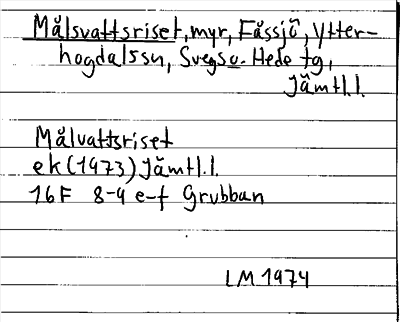 Målsvattsriset, myr, Fåssjö, Ytter-
hogdalssn, Svegs o. Hede tg,
Jämtl.l.
Målvattsriset
ek (1973) Jämtl.l.
16F 8-9 e-f Grubban
LM 1974